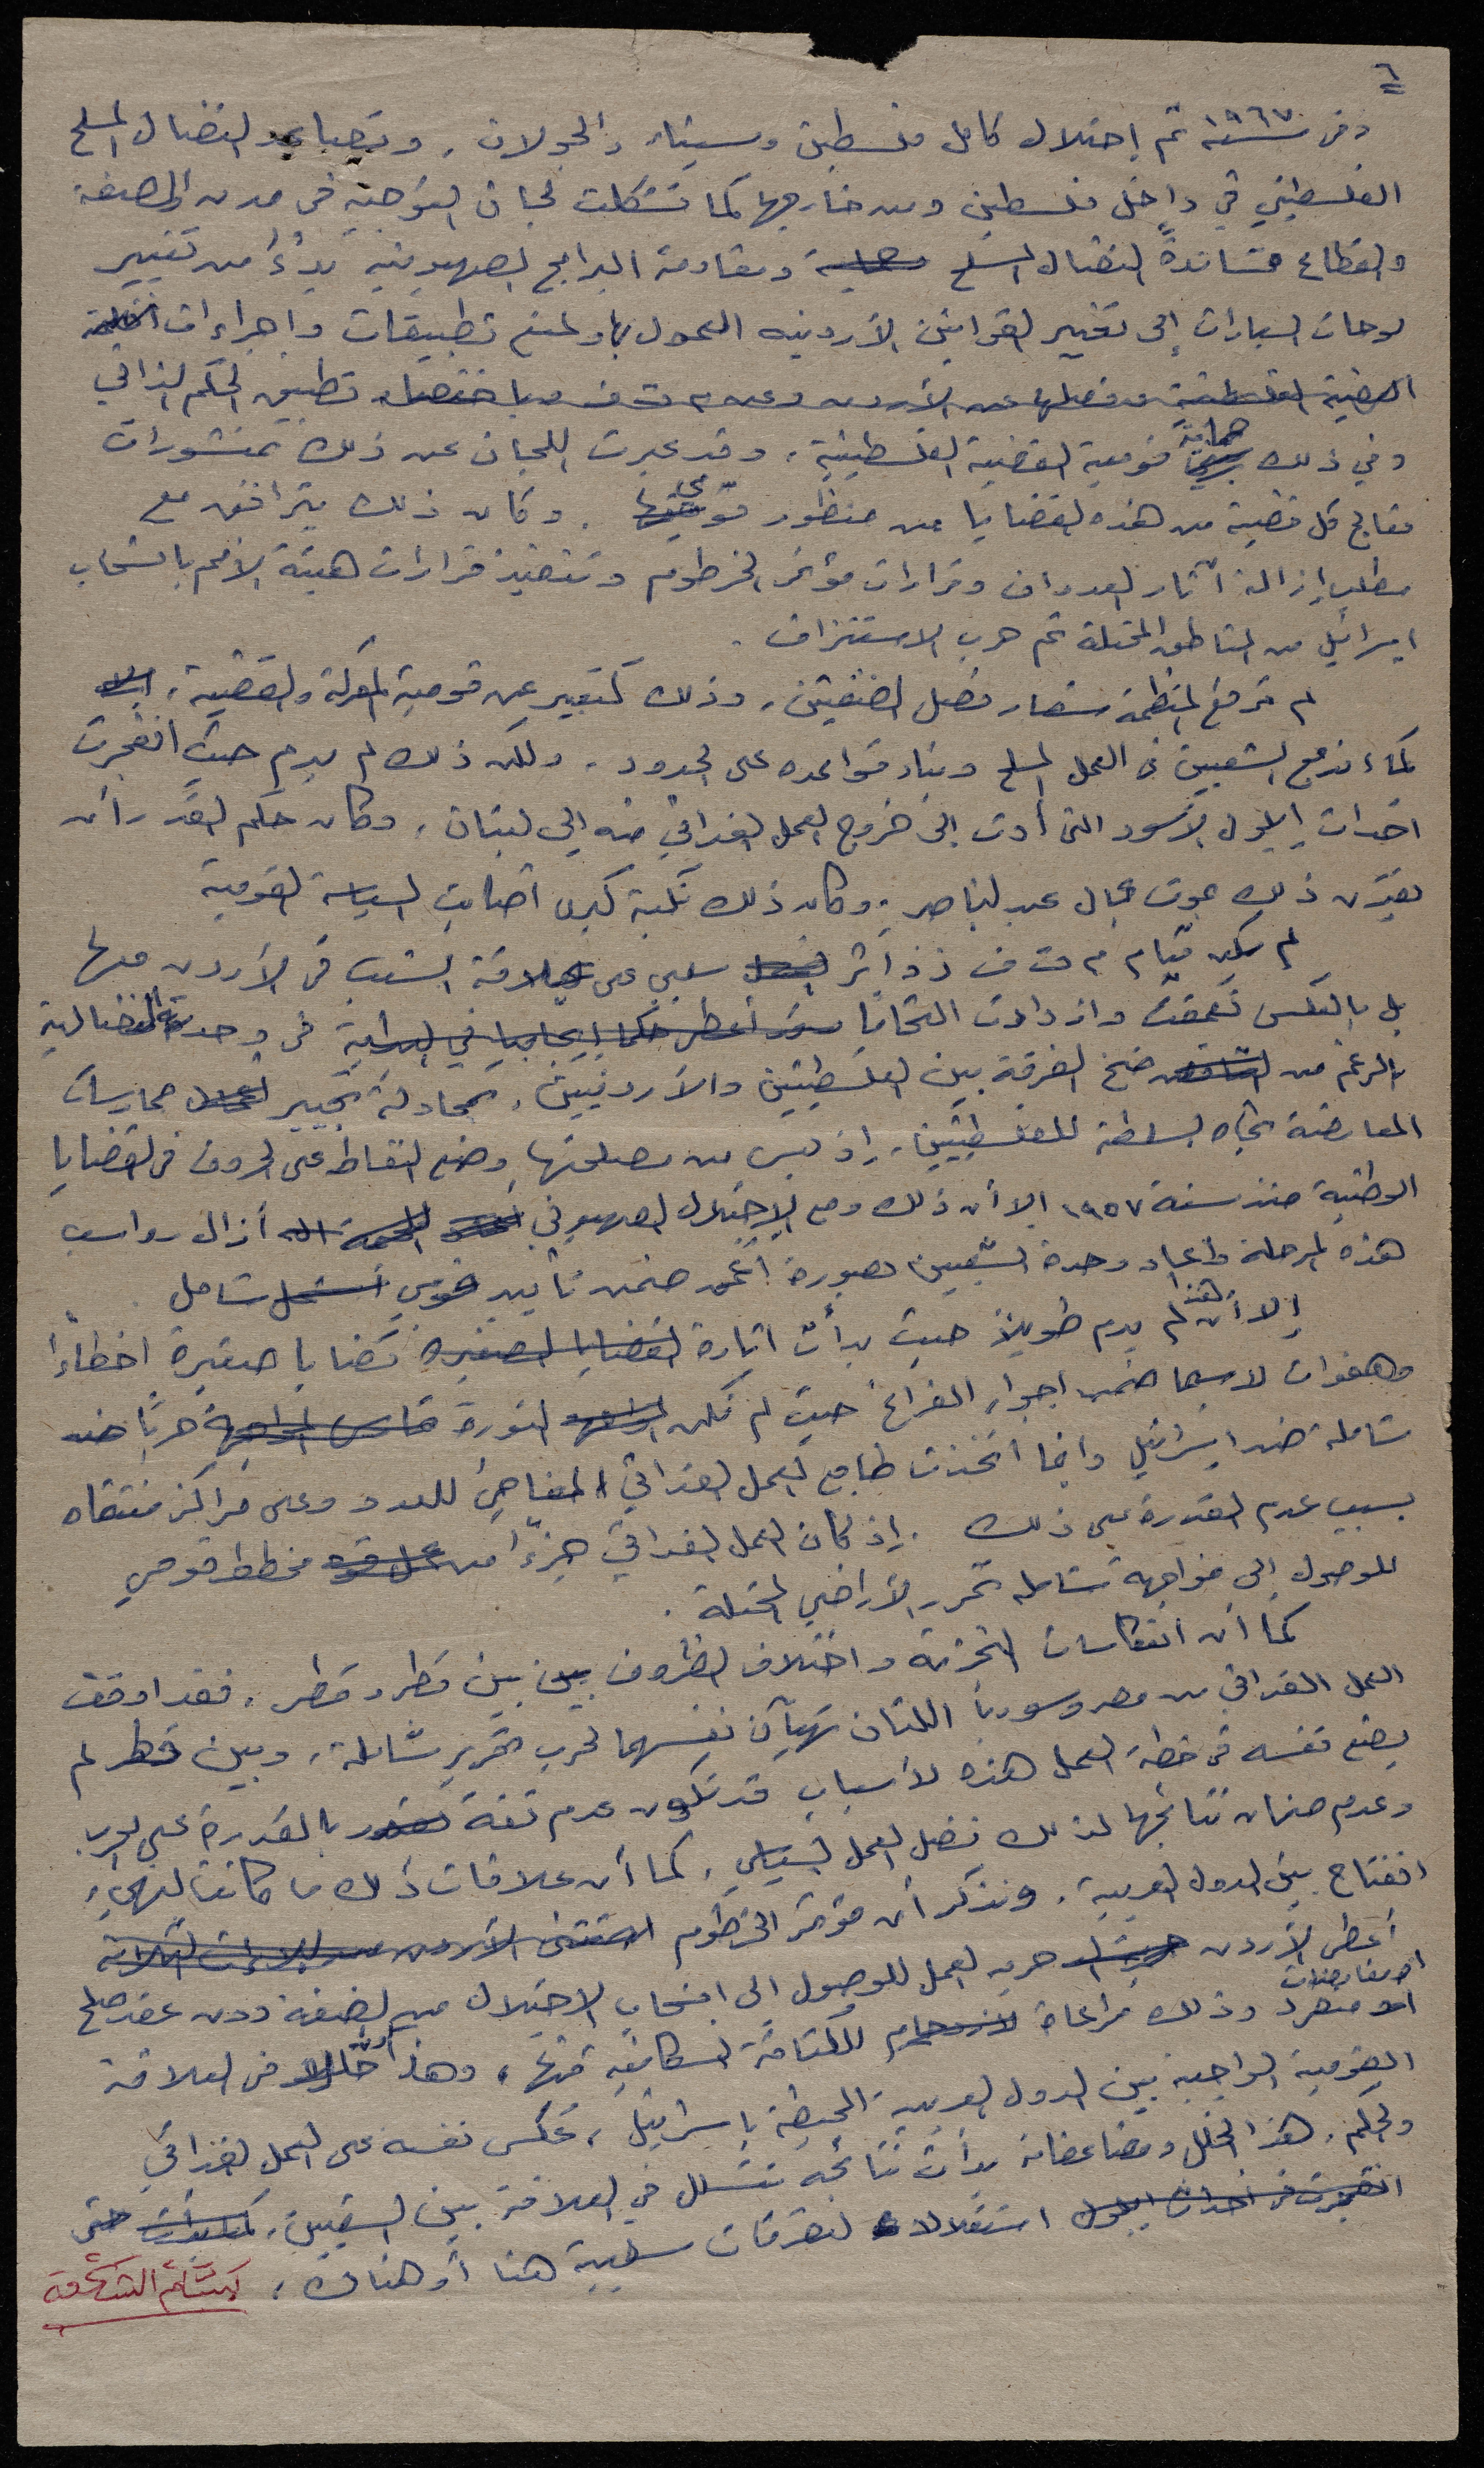 ٦
وفي سنة ١٩٦٧ تم إحتلال كامل فلسطين وسيناء والجولان، وتصاعد النضال المسلح
الفلسطيني في داخل فلسطين ومن خارجها كما تشكلت لجان التوجيه في مدن الضفة
والقطاع مساندة النضال المسلح ومقاومة البرامج الصهيونية بدءاً من تغيير
لوحات السيارات إلى تغيير القوانين الأردنية المعمول بها ولمنع تطبيقات واجراءات
القضية الفلسطينية وفصلها عن الأردن وعن م ت ف وباختصار تطبيق الحكم الذاتي
وفي ذلك حماية قومية القضية الفلسطينية. وقد عبرت اللجان عن ذلك بمنشورات
تعالج كل قضية من هذه القضايا من منظور قومي. وكان ذلك يترافق مع
مطلب إزالة آثار العدوان وقرارات مؤتمر الخرطوم وتنفيذ قرارات هيئة الأمم بانسحاب
اسرائيل من المناطق المحتلة ثم حرب الاستنزاف.
لم ترفع المنظمة شعار فصل الضفتين، وذلك كتعبير عن قومية المعركة والقضية،
كما اندمج الشعبين في العمل المسلح وبناء قواعده على الحدود. ولكن ذلك لم يدم حيث انفجرت
احداث ايلول الأسود التي أدت الى خروج العمل الفدائي منه إلى لبنان، وكان حكم القدر أن
يقترن ذلك بموت جمال عبد الناصر، وكان ذلك نكبة كبرى أصابت السياسة القومية
لم يكن قيام م ت ف ذو أثر سلبي على علاقة الشعب في الأردن معها
بل بالعكس تعمقت وازدادت التحاماً في وحدته النضالية
بالرغم من ضخ الفرقة بين الفلسطينيين والأردنيين، كمحاولة تجيير ممارسات
المعارضة تجاه السلطة للفلسطينيين، إذ ليس من مصلحتها وضع النقاط على الحروف في القضايا
الوطنية منذ سنة ١٩٥٧ الا أن ذلك ومع الإحتلال الصهيوني أزال رواسب
هذه المرحلة وأعاد وحدة الشعبين بصورة أعمق ضمن تأييد قومي شامل
إلا أن هذا لم يدم طويلاً حيث بدأت اثارة القضايا الصغيرة كقضايا صغيرة اخطاءً
وهفوات لاسيما ضمن اجواء الفراغ حيث لم تكن الثورة تمارس المواجهة حرباً ضد
شاملة ضد اسرائيل وانما اتخذت طابع العمل الفدائي المفاجئ للعدو وعلى مراكز منتقاه
بسبب عدم القدرة على ذلك. إذ كان العمل الفدائي جزءاً من مخطط قومي
للوصول إلى مواجهة شاملة تحرر الأراضي المحتلة.
كما أن انعكاسات التجزئة واختلاف الظروف بين بين قطر وقطر. فقد اوقف
العمل الفدائي من مصر وسوريا اللتان تهيآن نفسهما لحرب تحرير شاملة، وبين قطر لم
يضع نفسه في خطة العمل هذه لأسباب قد تكون عدم ثقة بالقدرة على الحرب
وعدم ضمان نتائجها لذلك فضل العمل السياسي، كما أن علاقات ذلك ما كانت لتهيء
انفتاح بين الدول العربية. ونذكر أن مؤتمر الخرطوم استثنى الأردن من اللاءات الثلاثة
أعطى الأردن حرية العمل للوصول الى انسحاب الاحتلال من الضفة دون عقد صلح
أو مفاوضات
منفرد وذلك مراعاة للكثافة السكانية فيها، وهذا خللاً في العلاقة
القومية الواجبة بين الدول العربية المحيطة باسرائيل، عكس نفسه على العمل الفدائي
والحكم. هذا الخلل ومضاعفاته بدأت نتائجه تتسلل في العلاقة بين الشعبين، حتى
انفجرت في أحداث ايلول استغلالاً لتصرفات سلبية هنا أو هناك،